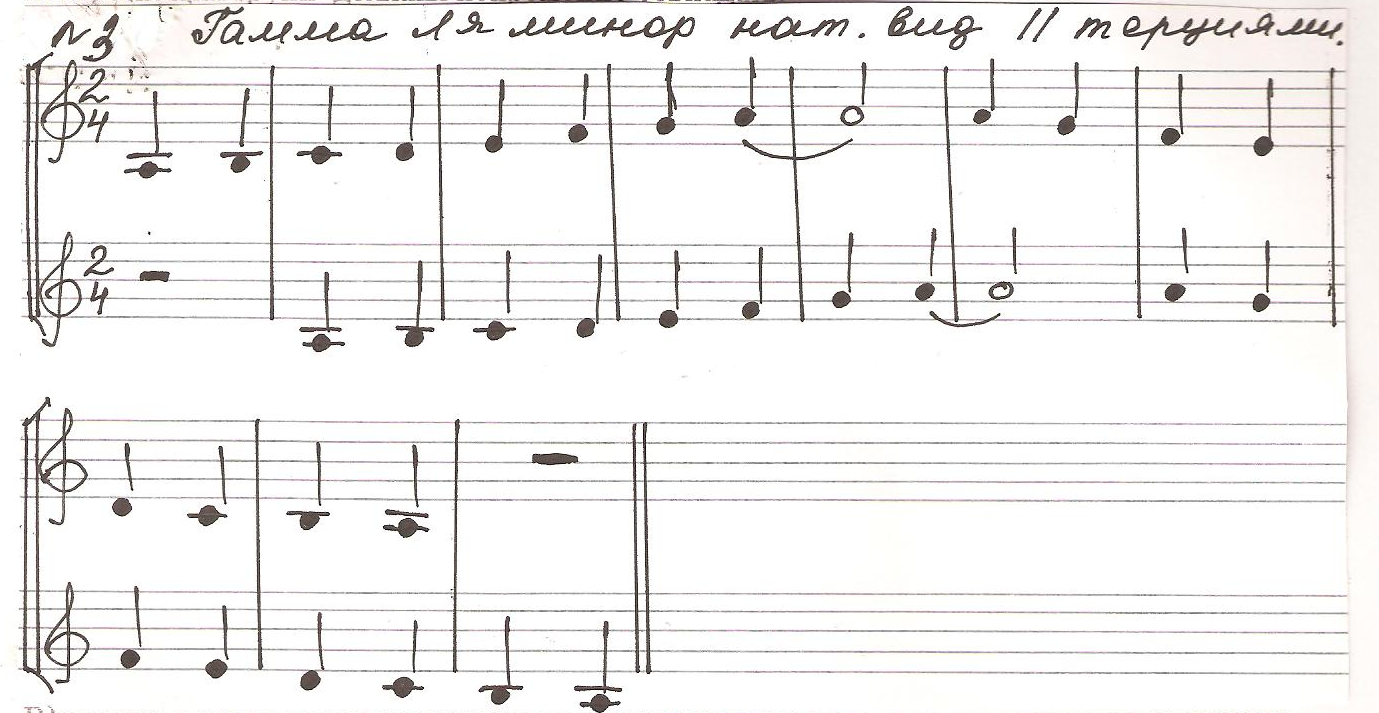 №3 Гамма Ля минор нат. вид II терциями.
2
4
2
4